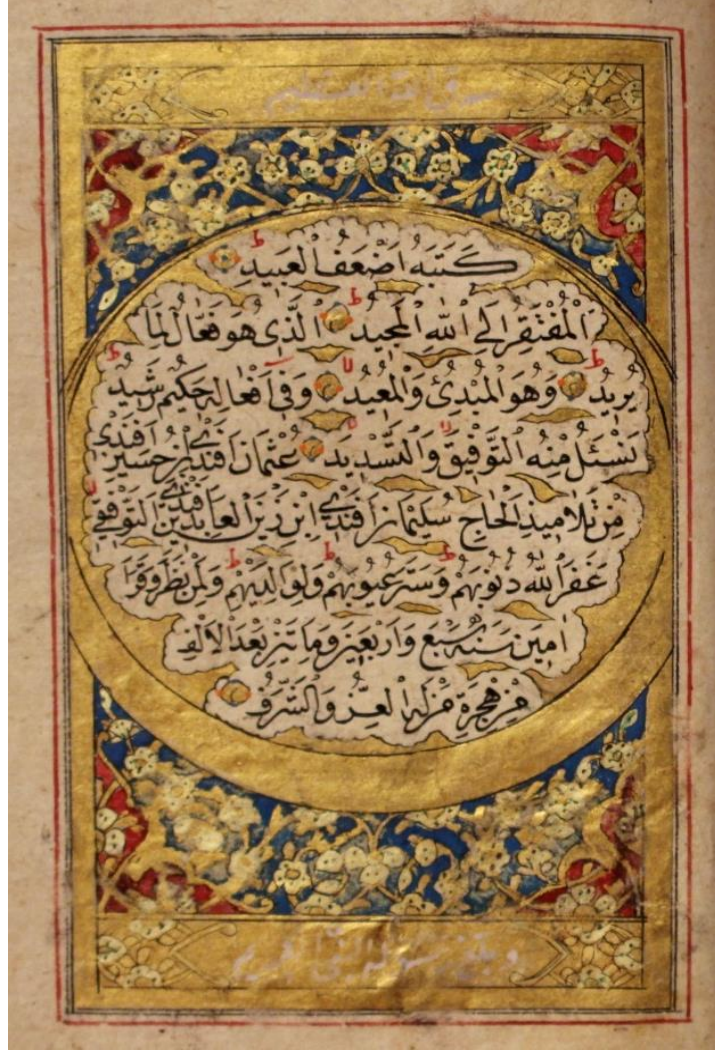 صدق الله العظيم
كَتَبَهُ اَضْعَفُ الْعَبِيدِ
اَلْمُفْتَقِرُ اِلَى اللّٰهِ الْمَجِيدِ اَلَّذِى هُوَ فَعَّالٌ لِمَا
يُرِيدُ وَهُوَ الْمُبْدِئُ وَالْمُعِيدُ وَفِى اَفْعَالِهِ حَكِيمٌ رَشِيدٌ
نَسْئَلُ مِنْهُ التَّوْفِيقَ وَالتَّسْدِيدَ عُثْمَانْ اَفَنْدِى بْنُ حُسَيْنْ اَفَنْدِى
مِنْ تَلَامِيذِ الْحَاجِ سُلَيْمَانْ اَفَنْدِى اِبْنِ زَيْنَ الْعَابِدِينْ اَفَنْدِى التَّوْفِيقِى
غَفَرَ اللّٰهُ ذُنُوبَهُمْ وَسَتَرَ عُيُوبَهُمْ وَلِوَالِدَيْهِمْ وَلِمَنْ نَظَرَ وَقَرَأَ
اٰمِينَ سَنَةَ سَبْعٍ وَاَرْبَعِينَ وَمِائَتَيْنِ بَعْدَ الْاَلْفِ
مِنْ هِجْرَةِ مَنْ لَهُ الْعِزُّ وَالشَّرَفُ
وبلغ رسوله النبى الكريم